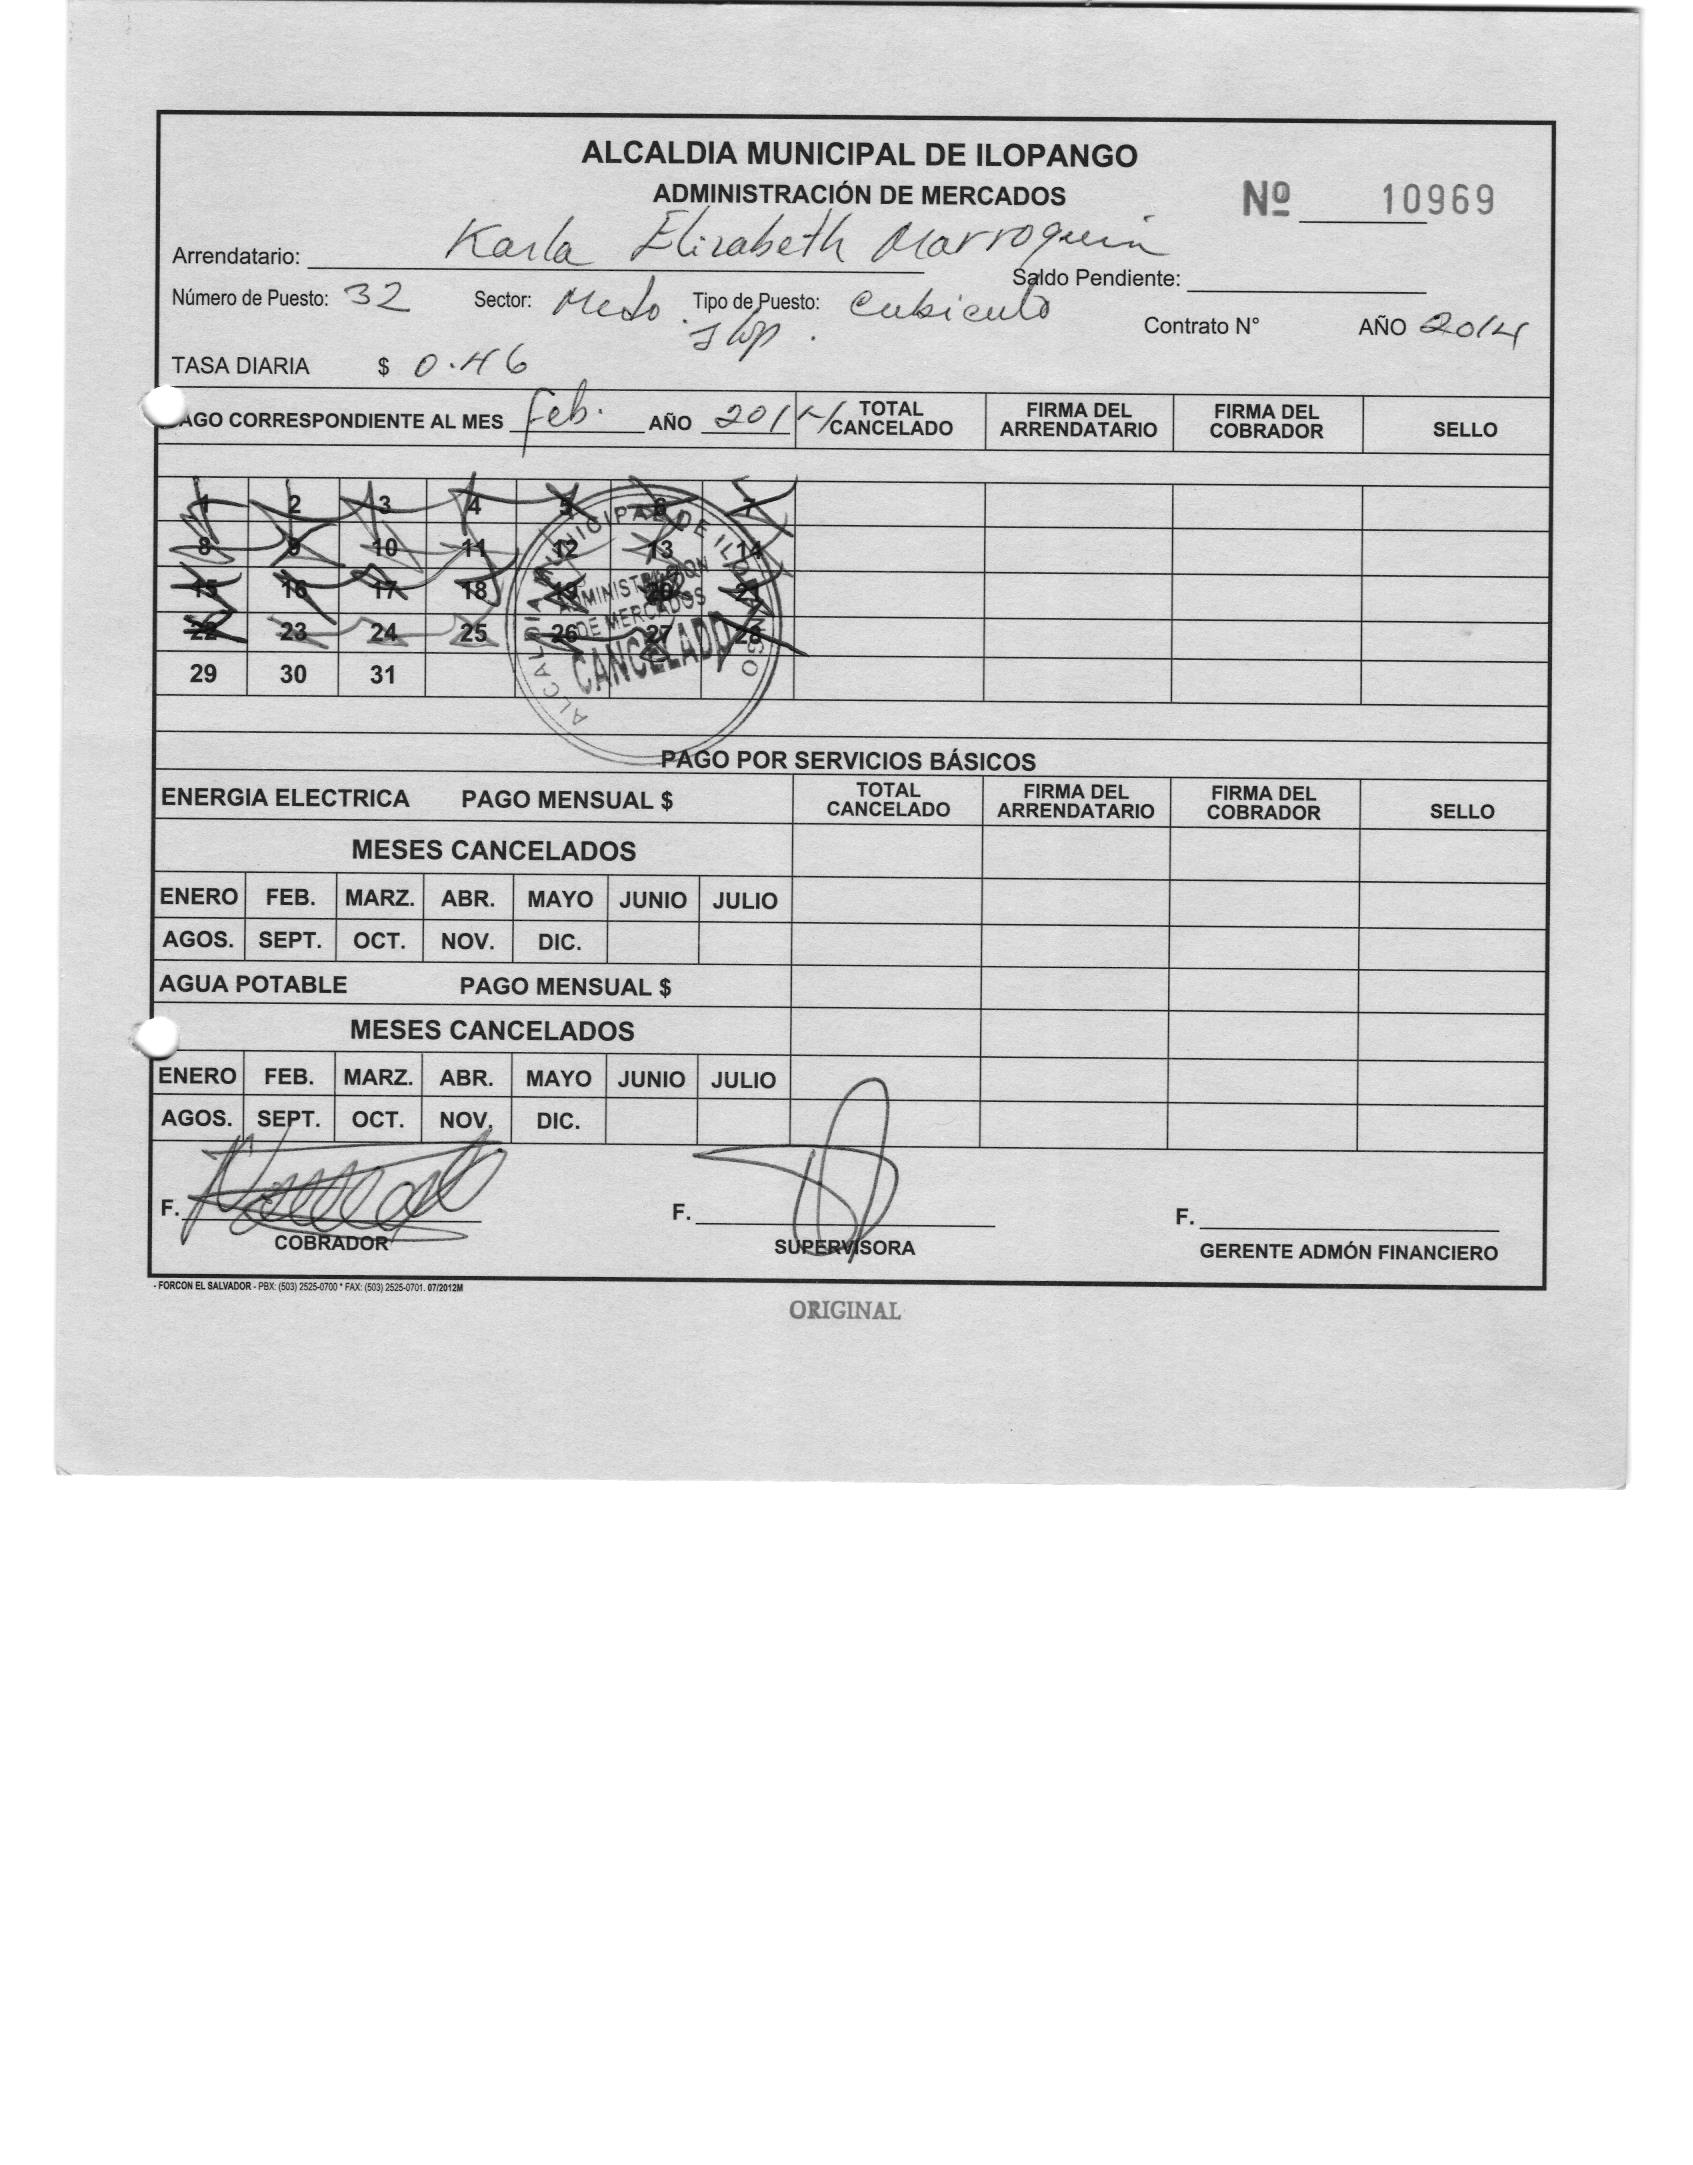 ALCALDIA MUNICIPAL DE ILOPANGO
ADMINISTRACIÓN DE MERCADOS
Nº 10969
Arrendatario: Karla Elizabeth Marroquin
Saldo Pendiente:
Número de Puesto: 32 Sector: Mcdo. Ilop. Tipo de Puesto: Cubiculo
Contrato N° AÑO 2014
TASA DIARIA $ 0.46
AGO CORRESPONDIENTE AL MES Feb. AÑO 2014 TOTAL CANCELADO FIRMA DEL ARRENDATARIO FIRMA DEL COBRADOR SELLO
1 2 3 4 5 6 7
8 9 10 11 12 13 14
15 16 17 18 19 20 21
22 23 24 25 26 27 28
29 30 31
ALCALDIA MUNICIPAL DE ILOPANGO
ADMINISTRACION
DE MERCADOS
CANCELADO
PAGO POR SERVICIOS BÁSICOS
ENERGIA ELECTRICA PAGO MENSUAL $ TOTAL CANCELADO FIRMA DEL ARRENDATARIO FIRMA DEL COBRADOR SELLO
MESES CANCELADOS
ENERO FEB. MARZ. ABR. MAYO JUNIO JULIO
AGOS. SEPT. OCT. NOV. DIC.
AGUA POTABLE PAGO MENSUAL $
MESES CANCELADOS
ENERO FEB. MARZ. ABR. MAYO JUNIO JULIO
AGOS. SEPT. OCT. NOV. DIC.
F. F. F.
COBRADOR SUPERVISORA GERENTE ADMÓN FINANCIERO
- FORCON EL SALVADOR - PBX: (503) 2525-0700 * FAX: (503) 2525-0701. 07/2012M
ORIGINAL